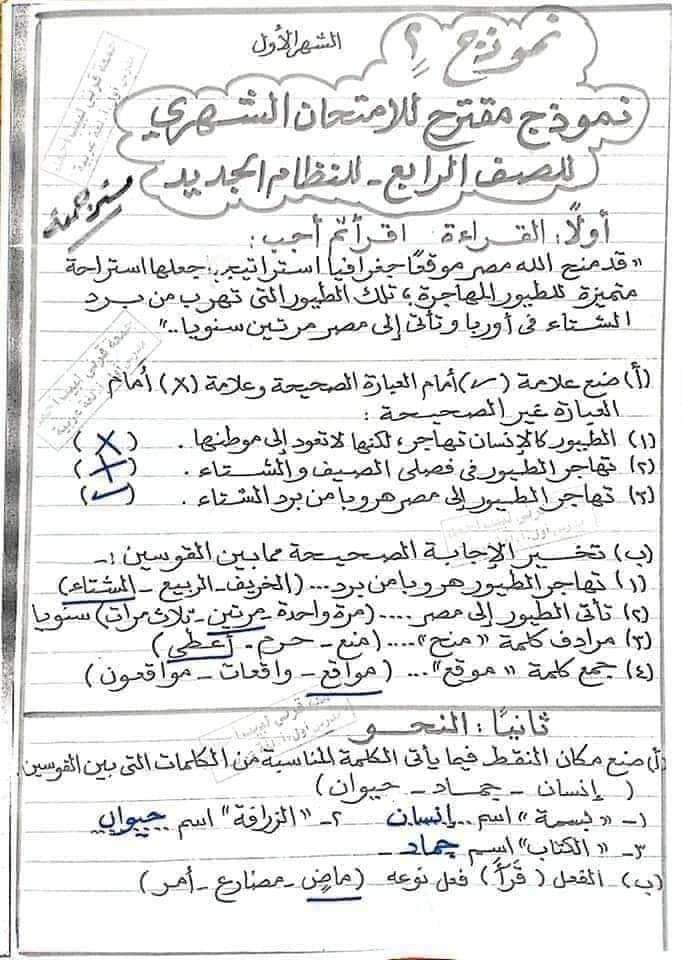 الشهر الأول
نموذج ٢
نموذج مقترح للامتحان الشهري
للصف الرابع - للنظام الجديد
مستر جمعة
أولًا: القراءة اقرأ ثم أجب:
"قد منح الله مصر موقعًا جغرافيا استراتيجيا جعلها استراحة
متميزة للطيور المهاجرة، تلك الطيور التى تهرب من برد
الشتاء فى أوربا وتأتى إلى مصر مرتين سنويا.."
(أ) ضع علامة (✓) أمام العبارة الصحيحة وعلامة (X) أمام
العبارة غير الصحيحة:
(١) الطيور كالإنسان تهاجر، لكنها لا تعود إلى موطنها. (X)
(٢) تهاجر الطيور فى فصلى الصيف والشتاء. (X)
(٣) تهاجر الطيور إلى مصر هروبا من برد الشتاء. (✓)
(ب) تخير الإجابة الصحيحة مما بين القوسين:-
(١) تهاجر الطيور هروبا من برد... (الخريف - الربيع - الشتاء)
(٢) تأتى الطيور إلى مصر .... (مرة واحدة - مرتين - ثلاث مرات) سنويا
(٣) مرادف كلمة "منح".... (منع - حرم - أعطى)
(٤) جمع كلمة "موقع"... (مواقع - واقعات - مواقعون)
ثانيًا: النحو
(أ) ضع مكان النقط فيما يأتى الكلمة المناسبة من الكلمات التى بين القوسين
(إنسان - جماد - حيوان)
١- "بسمة" اسم ... إنسان ٢- "الزرافة" اسم حيوان
٣- "الكتاب" اسم جماد
(ب) الفعل (قَرَأَ) فعل نوعه (ماضٍ - مضارع - أمر)